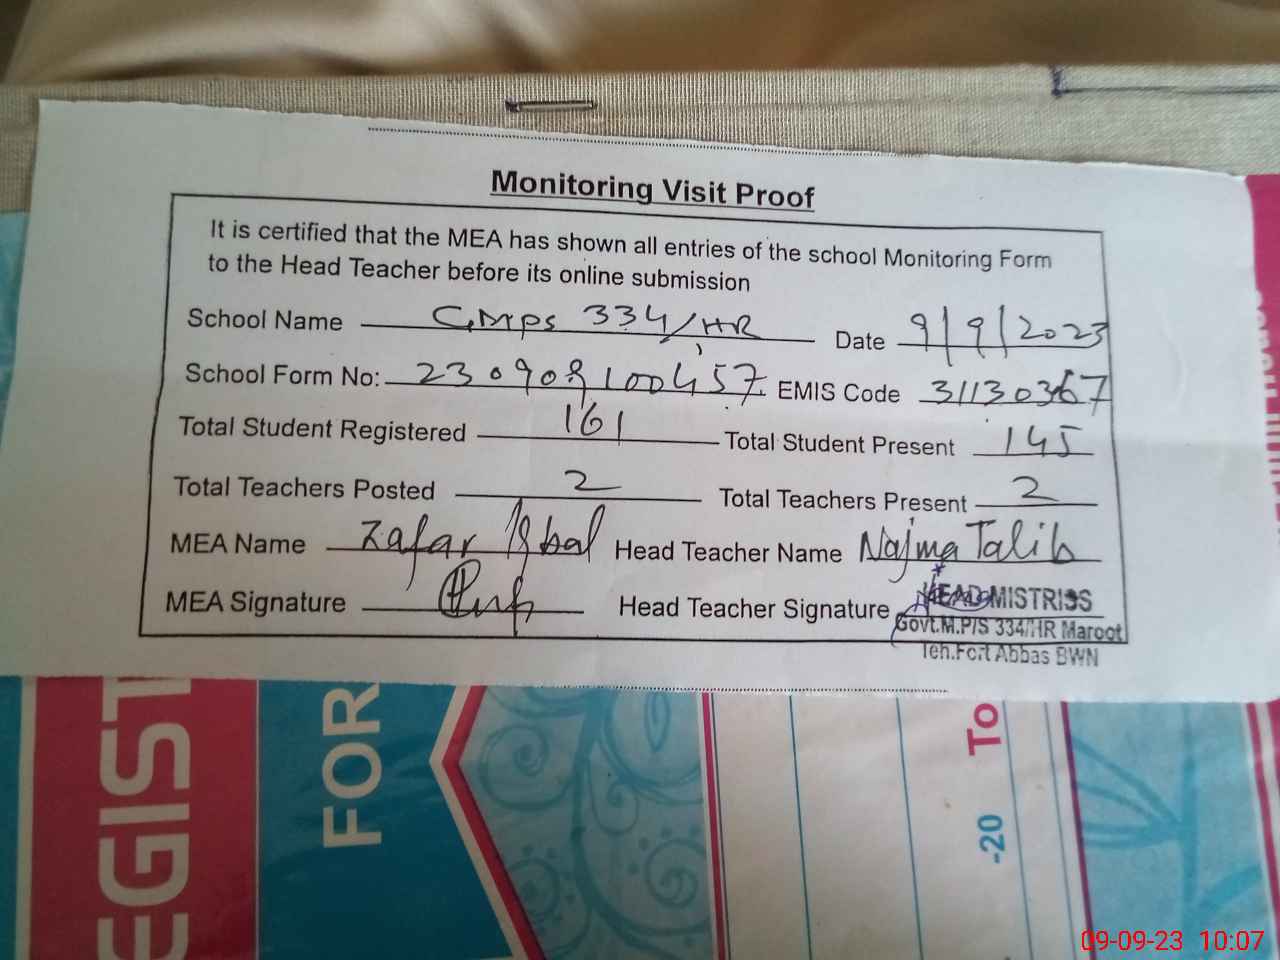 Monitoring Visit Proof
It is certified that the MEA has shown all entries of the school Monitoring Form
to the Head Teacher before its online submission
School Name GMPS 334/HR Date 9/9/2023
School Form No: 230908100457 EMIS Code 31130367
Total Student Registered 161 Total Student Present 145
Total Teachers Posted 2 Total Teachers Present 2
MEA Name Zafar Iqbal Head Teacher Name Najma Talib
MEA Signature Head Teacher Signature
HEAD MISTRISS
Govt.M.P/S 334/HR Maroot
Teh.Fort Abbas BWN
EGIST
FOR
-20 To
09-09-23 10:07